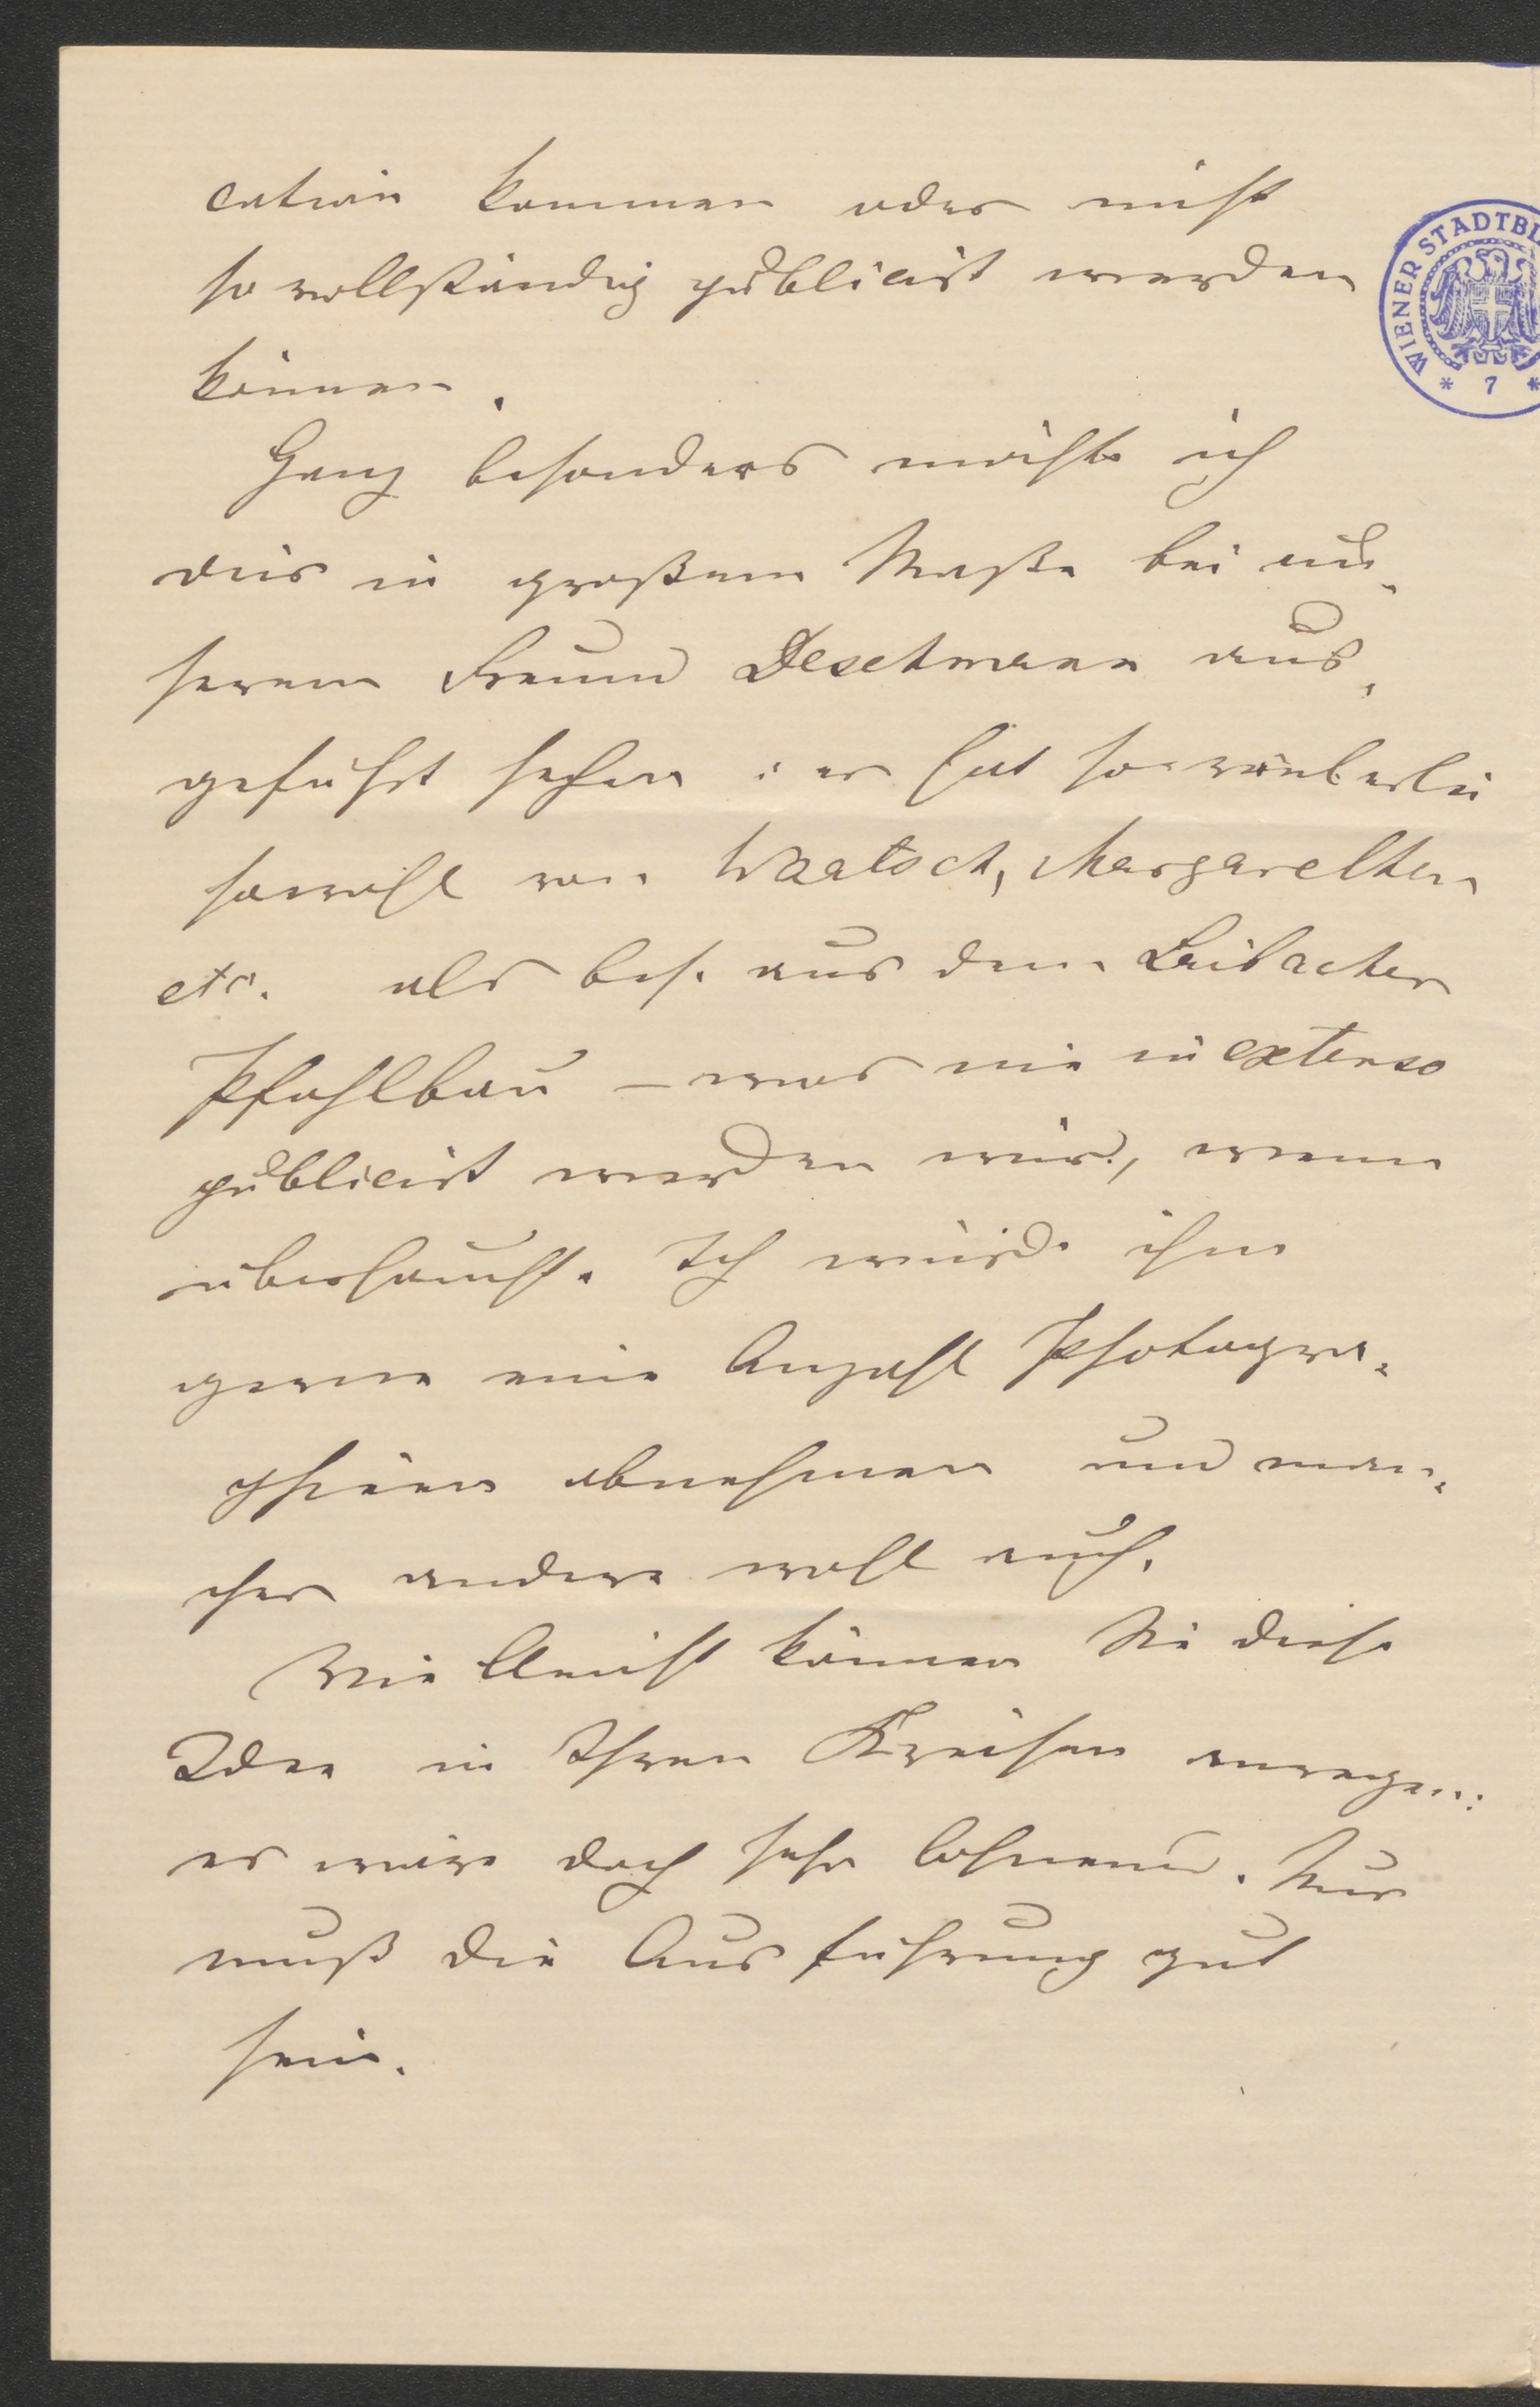 cation kommen oder nicht
so vollständig publicirt werden
können.
Ganz besonders möchte ich
dies in großem Maße bei un-
serem Freund Deschmann aus-
geführt sehen: er hat so vielerlei
sowohl von Waatsch, Margarethen
etc. als bes. aus dem Laibacher
Pfahlbau – was nie in extenso
publicirt werden wird, wenn
überhaupt. Ich würde ihm
gerne eine Anzahl Photogra-
phieen abnehmen und man-
cher andere wohl auch.
Vielleicht können Sie diese
Idee in Ihren Kreisen anregen:
es wäre doch sehr lohnend. Nur
muß die Ausführung gut
sein.
WIENER STADTBI
* 7 *